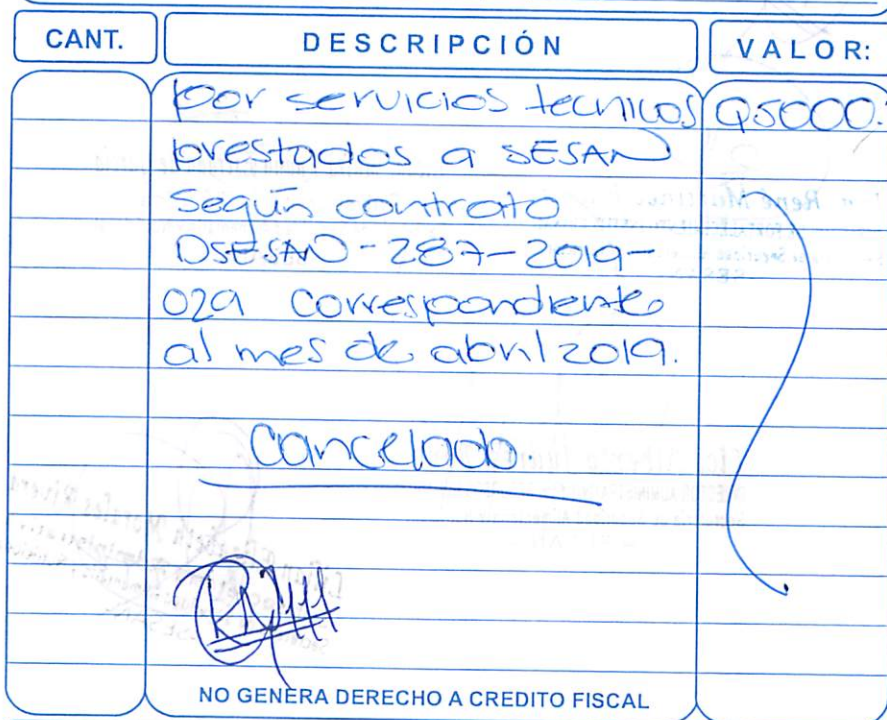 CANT. DESCRIPCIÓN VALOR:
por servicios tecnicos Q5000.
prestados a SESAN
Según contrato
DSESAN-287-2019-
029 correspondiente
al mes de abril 2019.
Cancelado.
NO GENERA DERECHO A CREDITO FISCAL